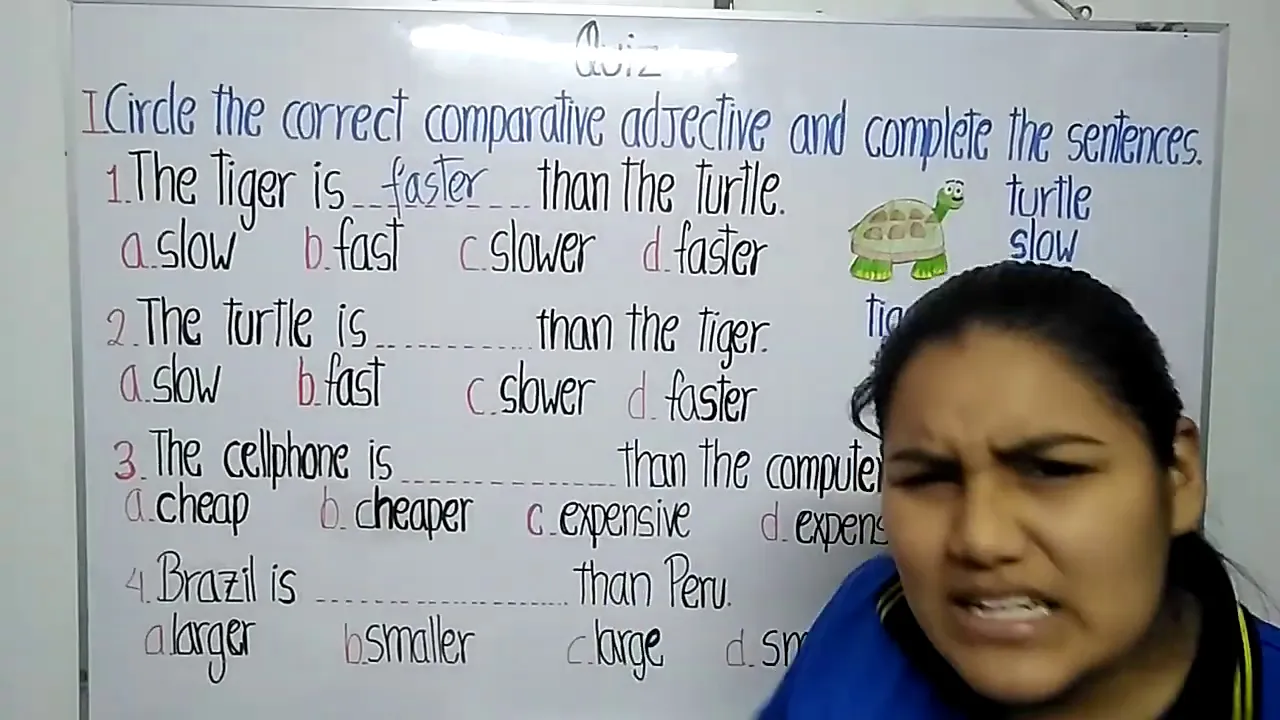 Quiz
I Circle the correct comparative adjective and complete the sentences.
1. The tiger is faster than the turtle.
a. slow b. fast c. slower d. faster
turtle
slow
2. The turtle is than the tiger.
a. slow b. fast c. slower d. faster
3. The cellphone is than the computer
a. cheap b. cheaper c. expensive d.
4. Brazil is than Peru.
a larger b smaller c. large d.